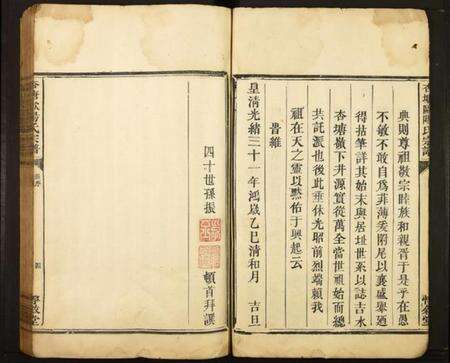 杏塘歐陽氏宗譜
典則尊祖敬宗睦族和親胥于是乎在愚
不敏不敢自為菲薄爰附尾以襄盛舉廼
得拮筆詳其始末與居址世系以誌吉水
杏塘嶺下井源實從萬全當世祖始而總
共託派也後此垂休光昭前烈端賴我
祖在天之靈以默佑于興起云
昔維
皇清光緒三十一年鴻歲乙巳清和月 吉旦
四十世孫振 頓首拜譔
杏塘歐陽氏宗譜